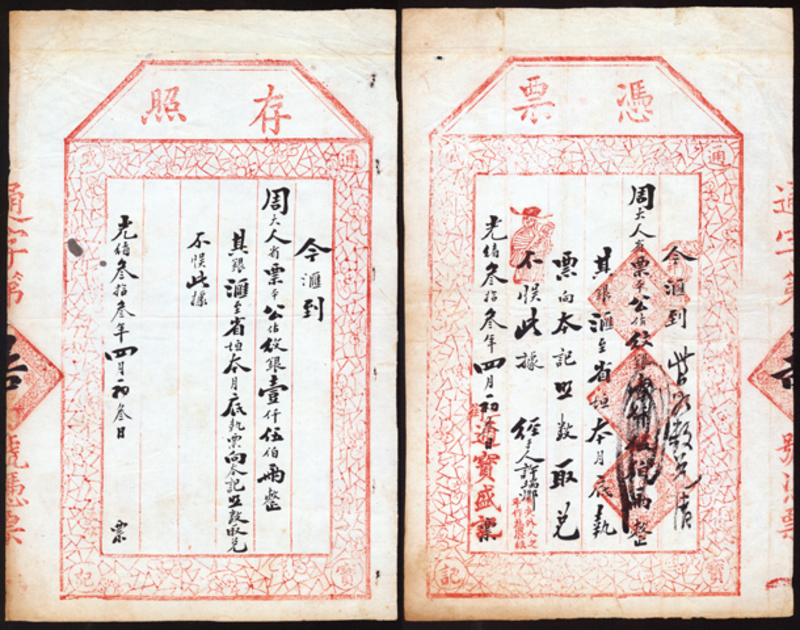 存照
今滙到
周大人省票平公估紋銀壹仟伍佰兩整
其銀滙至省垣本月底執票向本記照数取兑
不悮此據
光緒叁拾叁年四月初叁日
票
通字第
號憑票
憑票
今滙到
周大人省票平公估紋銀
兩整
其銀滙至省垣本月底執
票向本記照数取兑
不悮此據
經手人許瑞卿
光緒叁拾叁年四月初
通寶盛記
票
通字第
號憑票
通
寶
記
通
寶
記